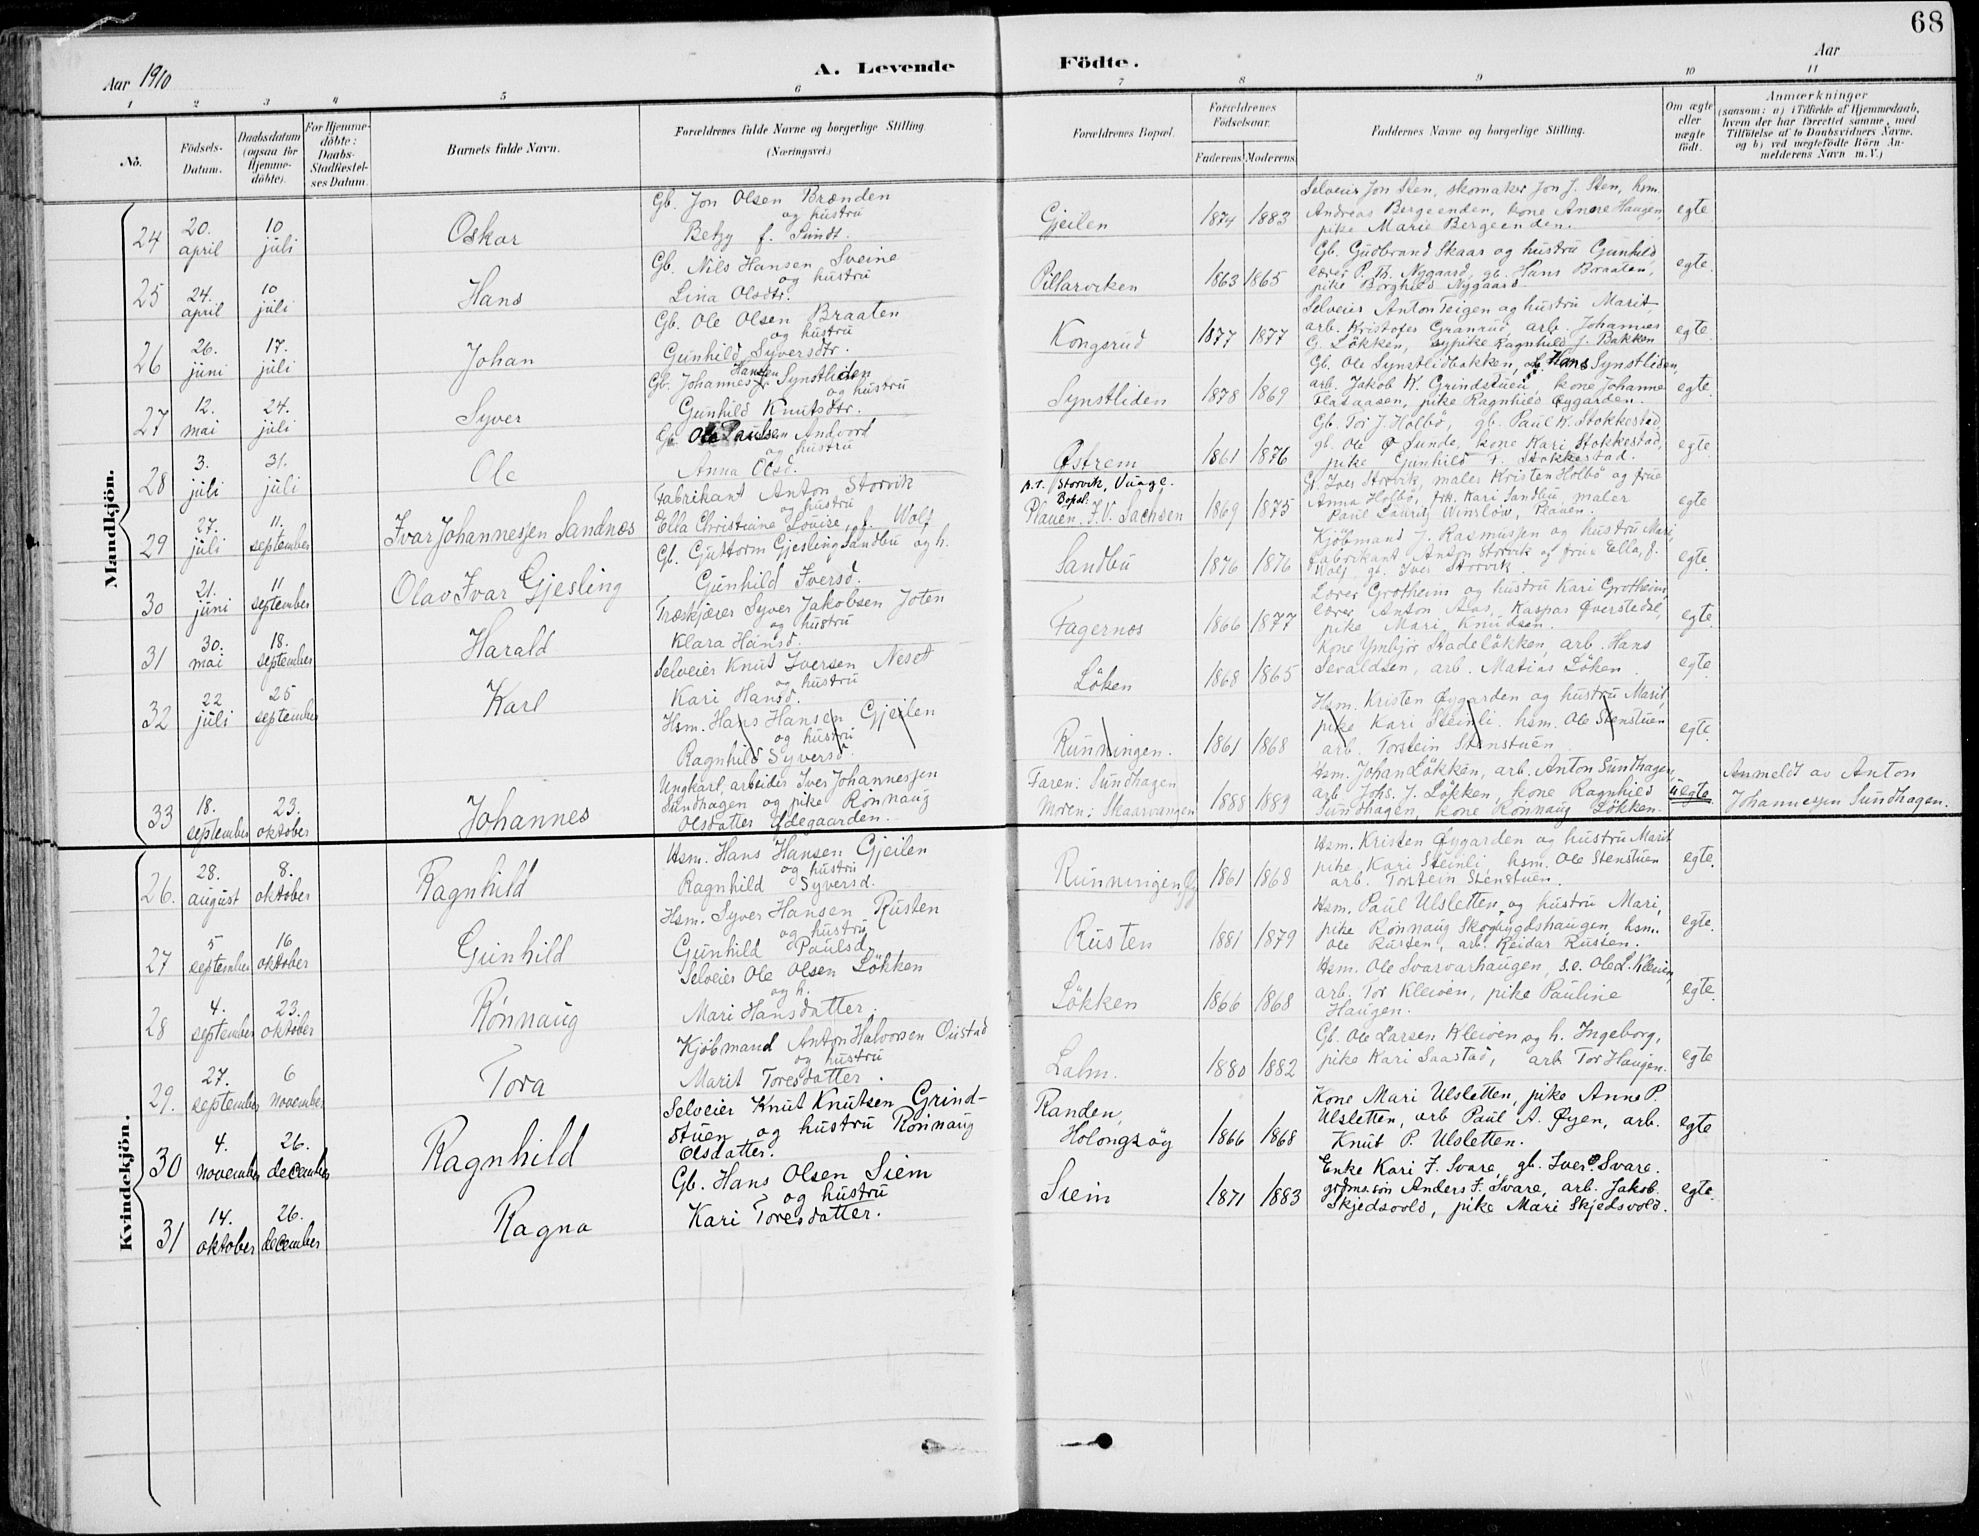 68
Aar 1910
A. Levende Födte.
Aar
1 2 3 4 5 6 7 8 9 10 11
No.
Födsels-Datum.
Daabsdatum (ogsaa for Hjemme-döbte).
For Hjemme-döbte: Daabs-Stadfæstel-ses Datum.
Barnets fulde Navn.
Forældrenes fulde Navne og borgerlige Stilling. (Næringsvei.)
Forældrenes Bopæl.
Forældrenes Födselsaar.
Faderens Moderens
Faddernes Navne og borgerlige Stilling.
Om ægte eller uægte födt.
Anmærkninger
(saasom: a) i Tilfælde af Hjemmedaab,
hvem der har forrettet samme, med
Tilföielse af to Daabsvidners Navne.
og b) ved uægtefödte Börn An-
melderens Navn m. V.)
Mandkjön.
24 20. april 10 juli Oskar
Gb. Jon Olsen Brænden
og hustru
Betzy f. Sundt.
Gjeilen 1874 1883
Selveier Jon Sten, skomaker Jon J. Sten, hsm.
Andreas Bergeenden, kone Anne Haugen
pike Marie Bergeenden.
egte
25 24. april 10 juli Hans
Gb. Nils Hansen Sveine
og hustru
Lina Olsdtr.
Pillarviken 1863 1865
Gb. Gudbrand Skaar og hustru Gunhild,
lærer P. Th. Nygaard, gb. Hans Braaten,
pike Borghild Nygaard.
egte.
26 26. juni 17. juli Johan
Gb. Ole Olsen Braaten
og hustru
Gunhild Syversdtr.
Kongsrud 1877 1877
Selveier Anton Teigen og hustru Marit,
arb. Kristofer Granrud, arb. Johannes
G. Løkken, sypike Ragnhild J. Bakken
egte
27 12. mai 24. juli Syver
Gb. Johannes Hansen Synstlien
og hustru
Gunhild Knutsdtr.
Synstliden 1878 1869
Gb. Ole Synstlidbakken, Hans Synstlien,
arb. Jakob K. Grindstuen, kone Johanne
Flasaasen, pike Ragnhild Øygarden.
egte.
28 3. juli 31. juli Ole
Gb. Ole Paulsen Andvord
og hustru
Anna Olsd.
Østrem 1861 1876
Gb. Tor J. Holbö, gb. Paul K. Stokkestad,
gb. Ole O. Sunde, kone Kari Stokkestad,
pike Gunhild T. Stokkestad.
egte.
29 27. juli 11. september Ivar Johannessen Sandnes
Fabrikant Anton Storvik
og hustru
Ella Christiane Louise, f. Wolf
p.t. Storvik, Vaage.
Bopæl:
Plauen, I.V. Sachsen 1869 1875
Gb. Iver Storvik, maler Kristen Holbö og frue
Anna Holbö, frk. Kari Sandbu, maler
Paul Lauritz Winslow, Plauen.
egte
30 21. juni 11 september Olav Ivar Gjesling
Gb. Guttorm Gjesling Sandbu og h.
Gunhild Iversd.
Sandbu 1876 1876
Kjöbmand J. Rasmussen og hustru Mari,
fabrikant Anton Storvik og frue Ella, f.
Wolf, gb. Iver Storvik.
egte.
31 30. mai 18. september Harald
Træskjærer Syver Jakobsen Joten
og hustru
Klara Hansd.
Fagernes 1866 1877
Lærer Grotheim og hustru Kari Grotheim,
lærer Anton Aas, Kaspar Øverstedal,
pike Mari Knudsen.
egte.
32 22 juli 25 september Karl
Selveier Knut Iversen Neset
og hustru
Kari Hansd.
Löken 1868 1865
Kone Ymbjør Stadeløkken, arb. Hans
Sevaldsen, arb. Matias Løken.
egte.
Hsm. Hans Hansen Gjeilen
og hustru
Ragnhild Syversd.
Runningen. 1861 1868
Hsm. Kristen Øygarden og hustru Marit,
pike Kari Steinli. hsm. Ole Stenstuen
arb. Torstein Stenstuen
egte.
33 18. september 23. oktober Johannes
Ungkarl, arbeider Iver Johannessen
Sundhagen og pike Rønnaug
Olsdatter Ødegaarden.
Faren: Sundhagen
Moren: Skaarvangen 1888 1889
Hsm. Johan Løkken, arb. Anton Sundhagen,
arb. Johs. J. Løkken, kone Ragnhild
Sundhagen, kone Rønnaug Løkken.
uegte.
Anmeldt av Anton
Johannessen Sundhagen.
Kvindekjön.
26. 28. august 8. oktober Ragnhild
Hsm. Hans Hansen Gjeilen
og hustru
Ragnhild Syversd.
Runningen 1861 1868
Hsm. Kristen Øygarden og hustru Marit
pike Kari Steinli, hsm. Ole Stenstuen
arb. Torstein Stenstuen.
egte.
27 5 september 16 oktober Gunhild
Hsm. Syver Hansen Rusten
og hustru
Gunhild Paulsd.
Rusten 1881 1879
Hsm. Paul Ulsletten og hustru Mari,
pike Rønnaug Skogbygdshaugen, hsm.
Ole Rusten, arb. Reidar Rusten.
egte.
28 4. september 23. oktober Rønnaug
Selveier Ole Olsen Løkken
og h.
Mari Hansdatter.
Løkken 1866 1868
Hsm. Ole Svarvarhaugen, s.e. Ole L. Kleiven,
arb. Tor Kleiven, pike Pauline
Haugen.
egte.
29. 27. september 6 november Tora
Kjöbmand Anton Halvorsen Oustad
og hustru
Marit Toresdatter.
Lalm. 1880 1882
Gb. Ole Larsen Kleiven og h. Ingeborg,
pike Kari Saastad, arb. Tor Haugen.
egte
30 4. november 26. december Ragnhild
Selveier Knut Knutsen Grind-
stuen og hustru Rønnaug
Olsdatter.
Randen,
Holongsøy 1866 1868
Kone Mari Ulsletten, pike Anne P.
Ulsletten, arb Paul A. Øyen, arb.
Knut P. Ulsletten.
egte
31 14. oktober 26. december Ragna
Gb. Hans Olsen Siem
og hustru
Kari Toresdatter.
Siem 1871 1883
Enke Kari I. Svare, gb. Iver Svare.
grdms.søn Anders I. Svare, arb. Jakob
Skjedsvold, pike Mari Skjedsvold.
egte.